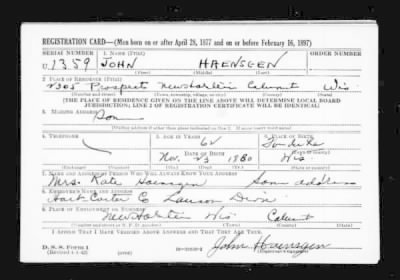 REGISTRATION CARD—(Men born on or after April 28, 1877 and on or before February 16, 1897)
SERIAL NUMBER 1. NAME (Print) ORDER NUMBER
U 1359 JOHN HAENSGEN
(First) (Middle) (Last)
2. PLACE OF RESIDENCE (Print)
2305 Prospect New Holstein Calumet Wis
(Number and street) (Town, township, village, or city) (County) (State)
[THE PLACE OF RESIDENCE GIVEN ON THE LINE ABOVE WILL DETERMINE LOCAL BOARD
JURISDICTION; LINE 2 OF REGISTRATION CERTIFICATE WILL BE IDENTICAL]
3. MAILING ADDRESS
Same
[Mailing address if other than place indicated on line 2. If same insert word same]
4. TELEPHONE 5. AGE IN YEARS 6. PLACE OF BIRTH
62
DATE OF BIRTH
Nov. 23 1880 Wis
(Exchange) (Number) (Mo.) (Day) (Yr.) (State or country)
7. NAME AND ADDRESS OF PERSON WHO WILL ALWAYS KNOW YOUR ADDRESS
Mrs. Kate Haensgen Same address
8. EMPLOYER'S NAME AND ADDRESS
Hart Carter Co Lauson Divn
9. PLACE OF EMPLOYMENT OR BUSINESS
New Holstein Wis Calumet
(Number and street or R. F. D. number) (Town) (County) (State)
I AFFIRM THAT I HAVE VERIFIED ABOVE ANSWERS AND THAT THEY ARE TRUE.
D. S. S. Form 1
(Revised 4-1-42) (over)
John Haensgen
(Registrant's signature)